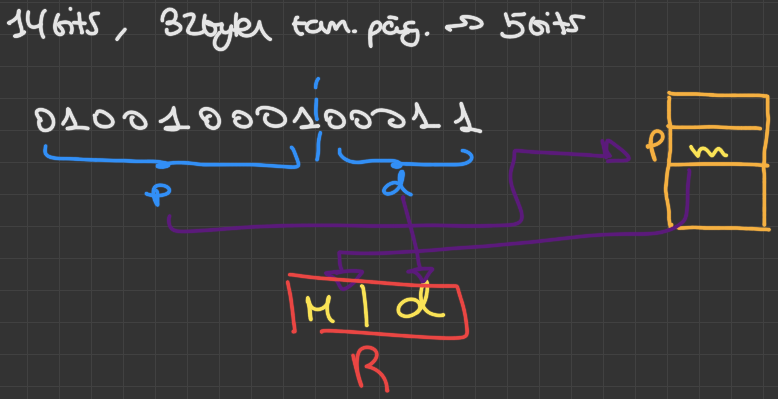 14bits, 32bytes tam. pág. → 5bits
01001000100011
p d
p m
M | d
R